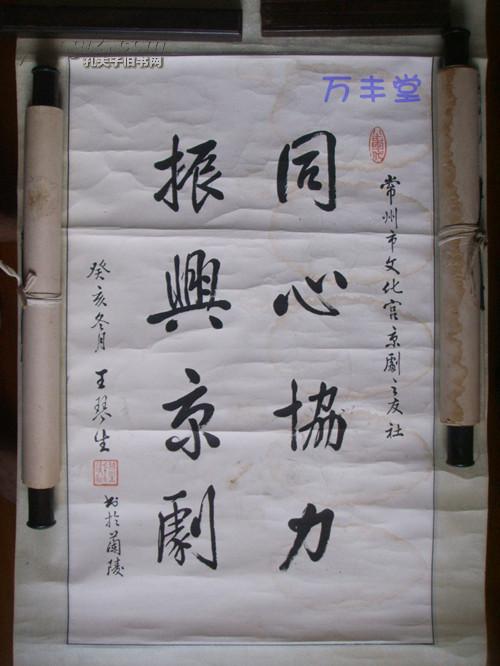 孔夫子旧书网
万丰堂
常州市文化宫京劇之友社
同心協力
振興京劇
癸亥冬月 王琴生
书於蘭陵